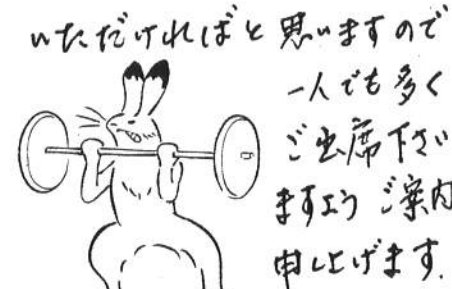 いただければと思いますので
一人でも多く
ご出席下さい
ますようご案内
申し上げます.